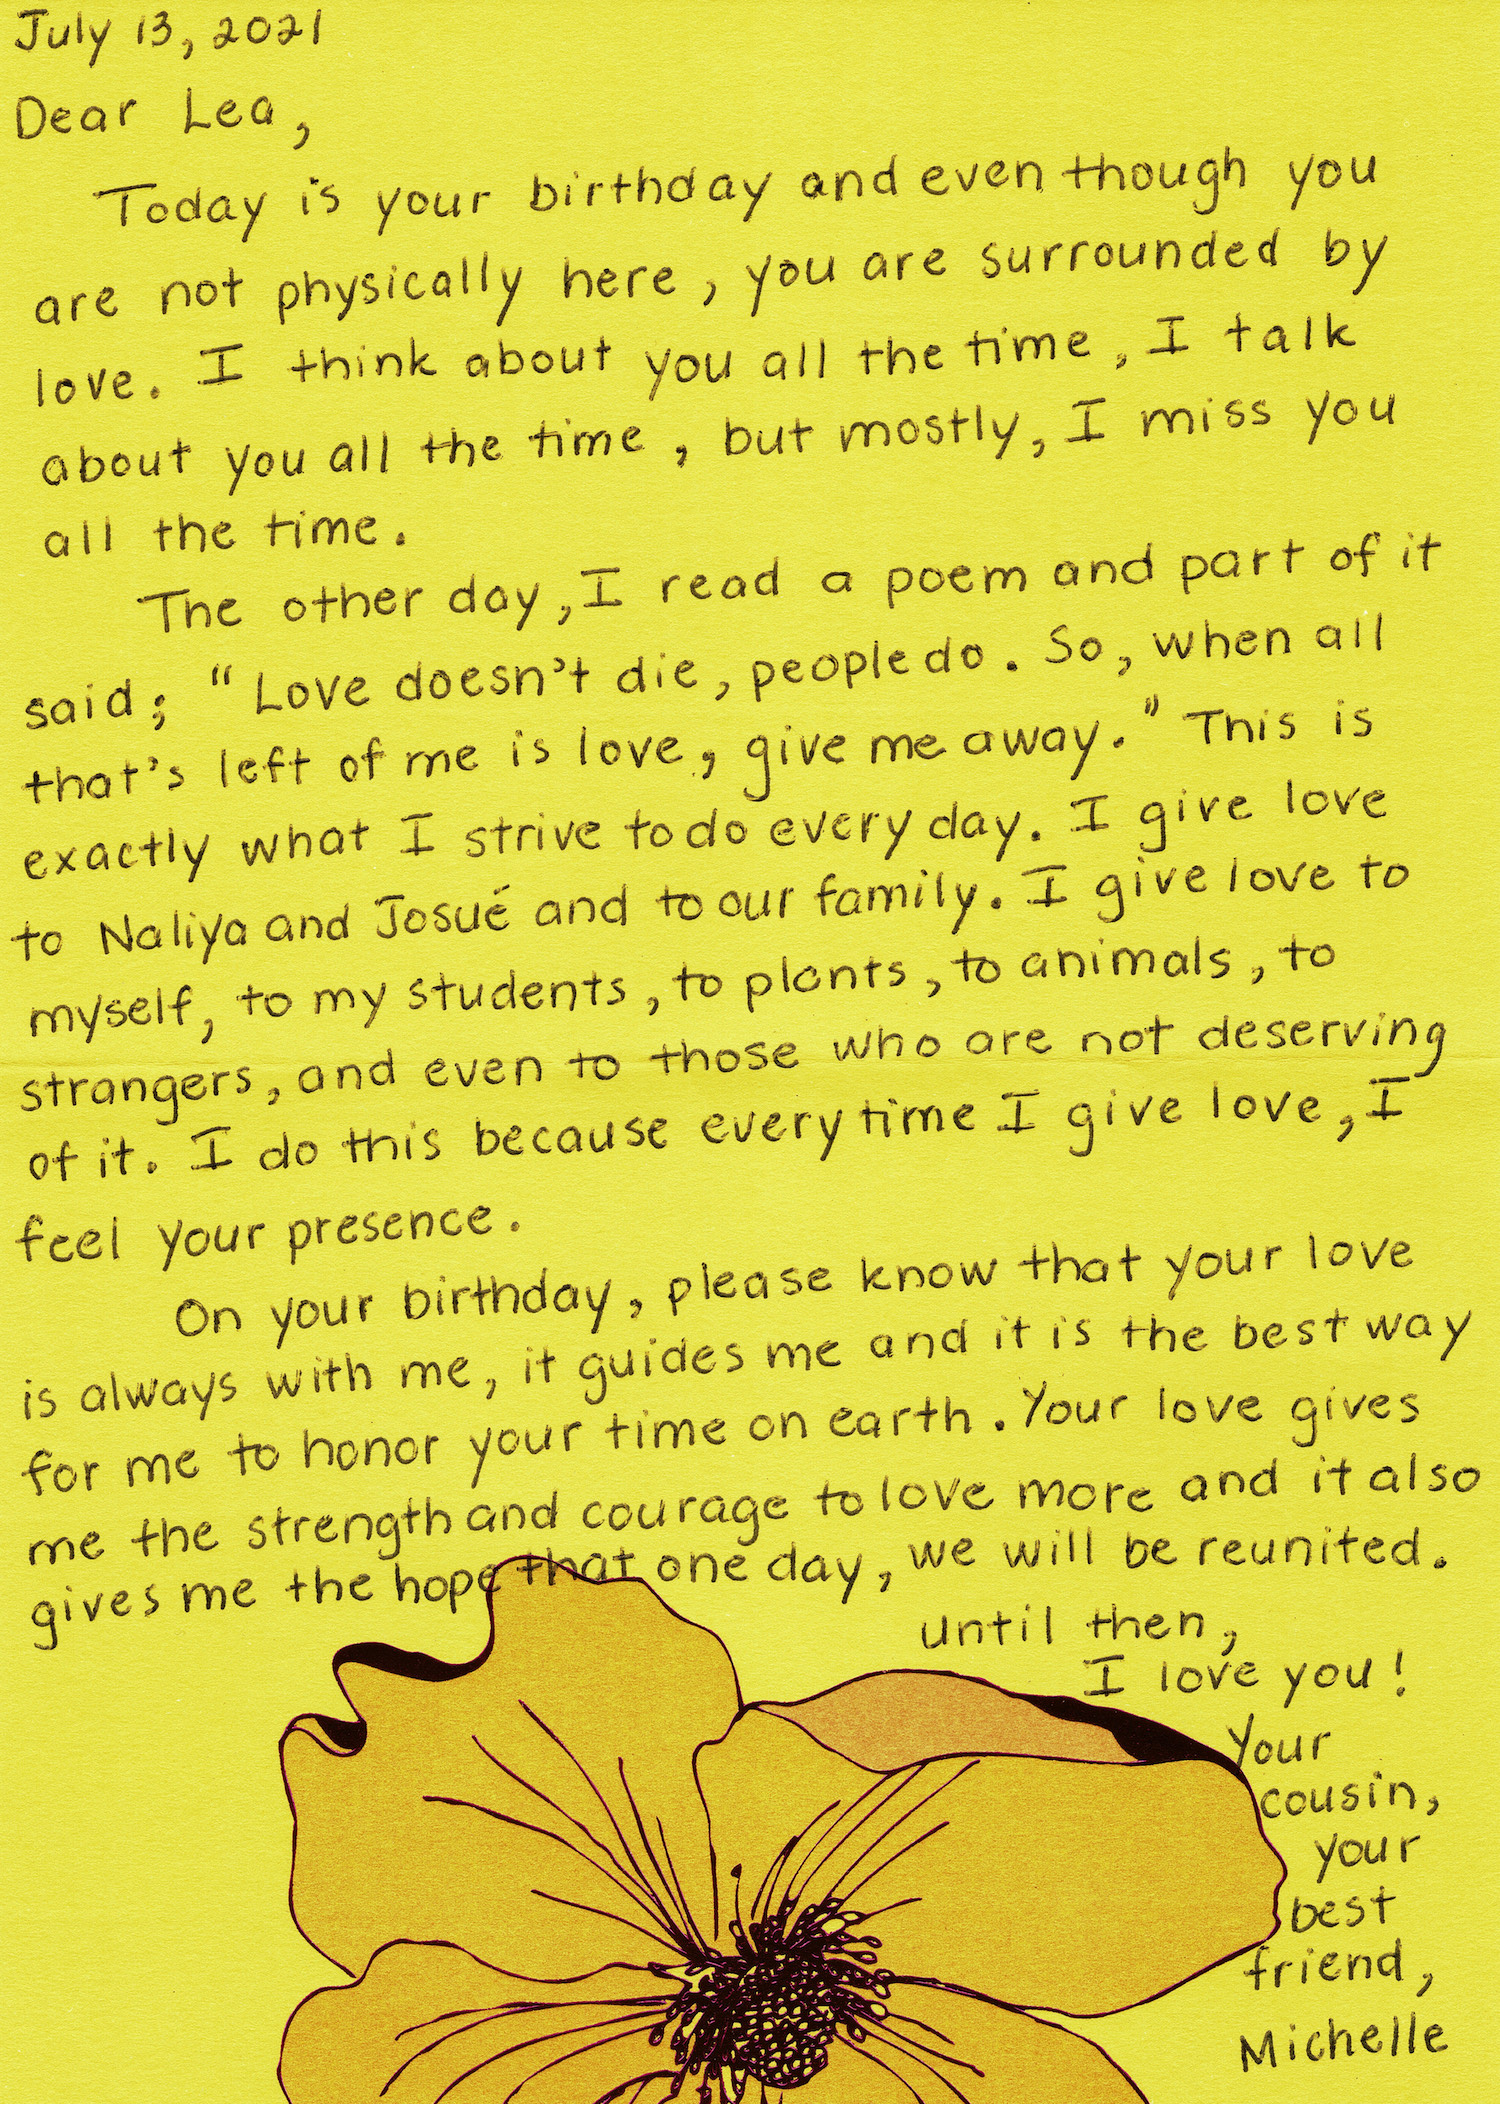 July 13, 2021
Dear Lea,
Today is your birthday and even though you
are not physically here, you are surrounded by
love. I think about you all the time, I talk
about you all the time, but mostly, I miss you
all the time.
The other day, I read a poem and part of it
said; "Love doesn't die, people do. So, when all
that's left of me is love, give me away." This is
exactly what I strive to do every day. I give love
to Naliya and Josué and to our family. I give love to
myself, to my students, to plants, to animals, to
strangers, and even to those who are not deserving
of it. I do this because every time I give love, I
feel your presence.
On your birthday, please know that your love
is always with me, it guides me and it is the best way
for me to honor your time on earth. Your love gives
me the strength and courage to love more and it also
gives me the hope that one day, we will be reunited.
until then,
I love you!
Your
cousin,
your
best
friend,
Michelle